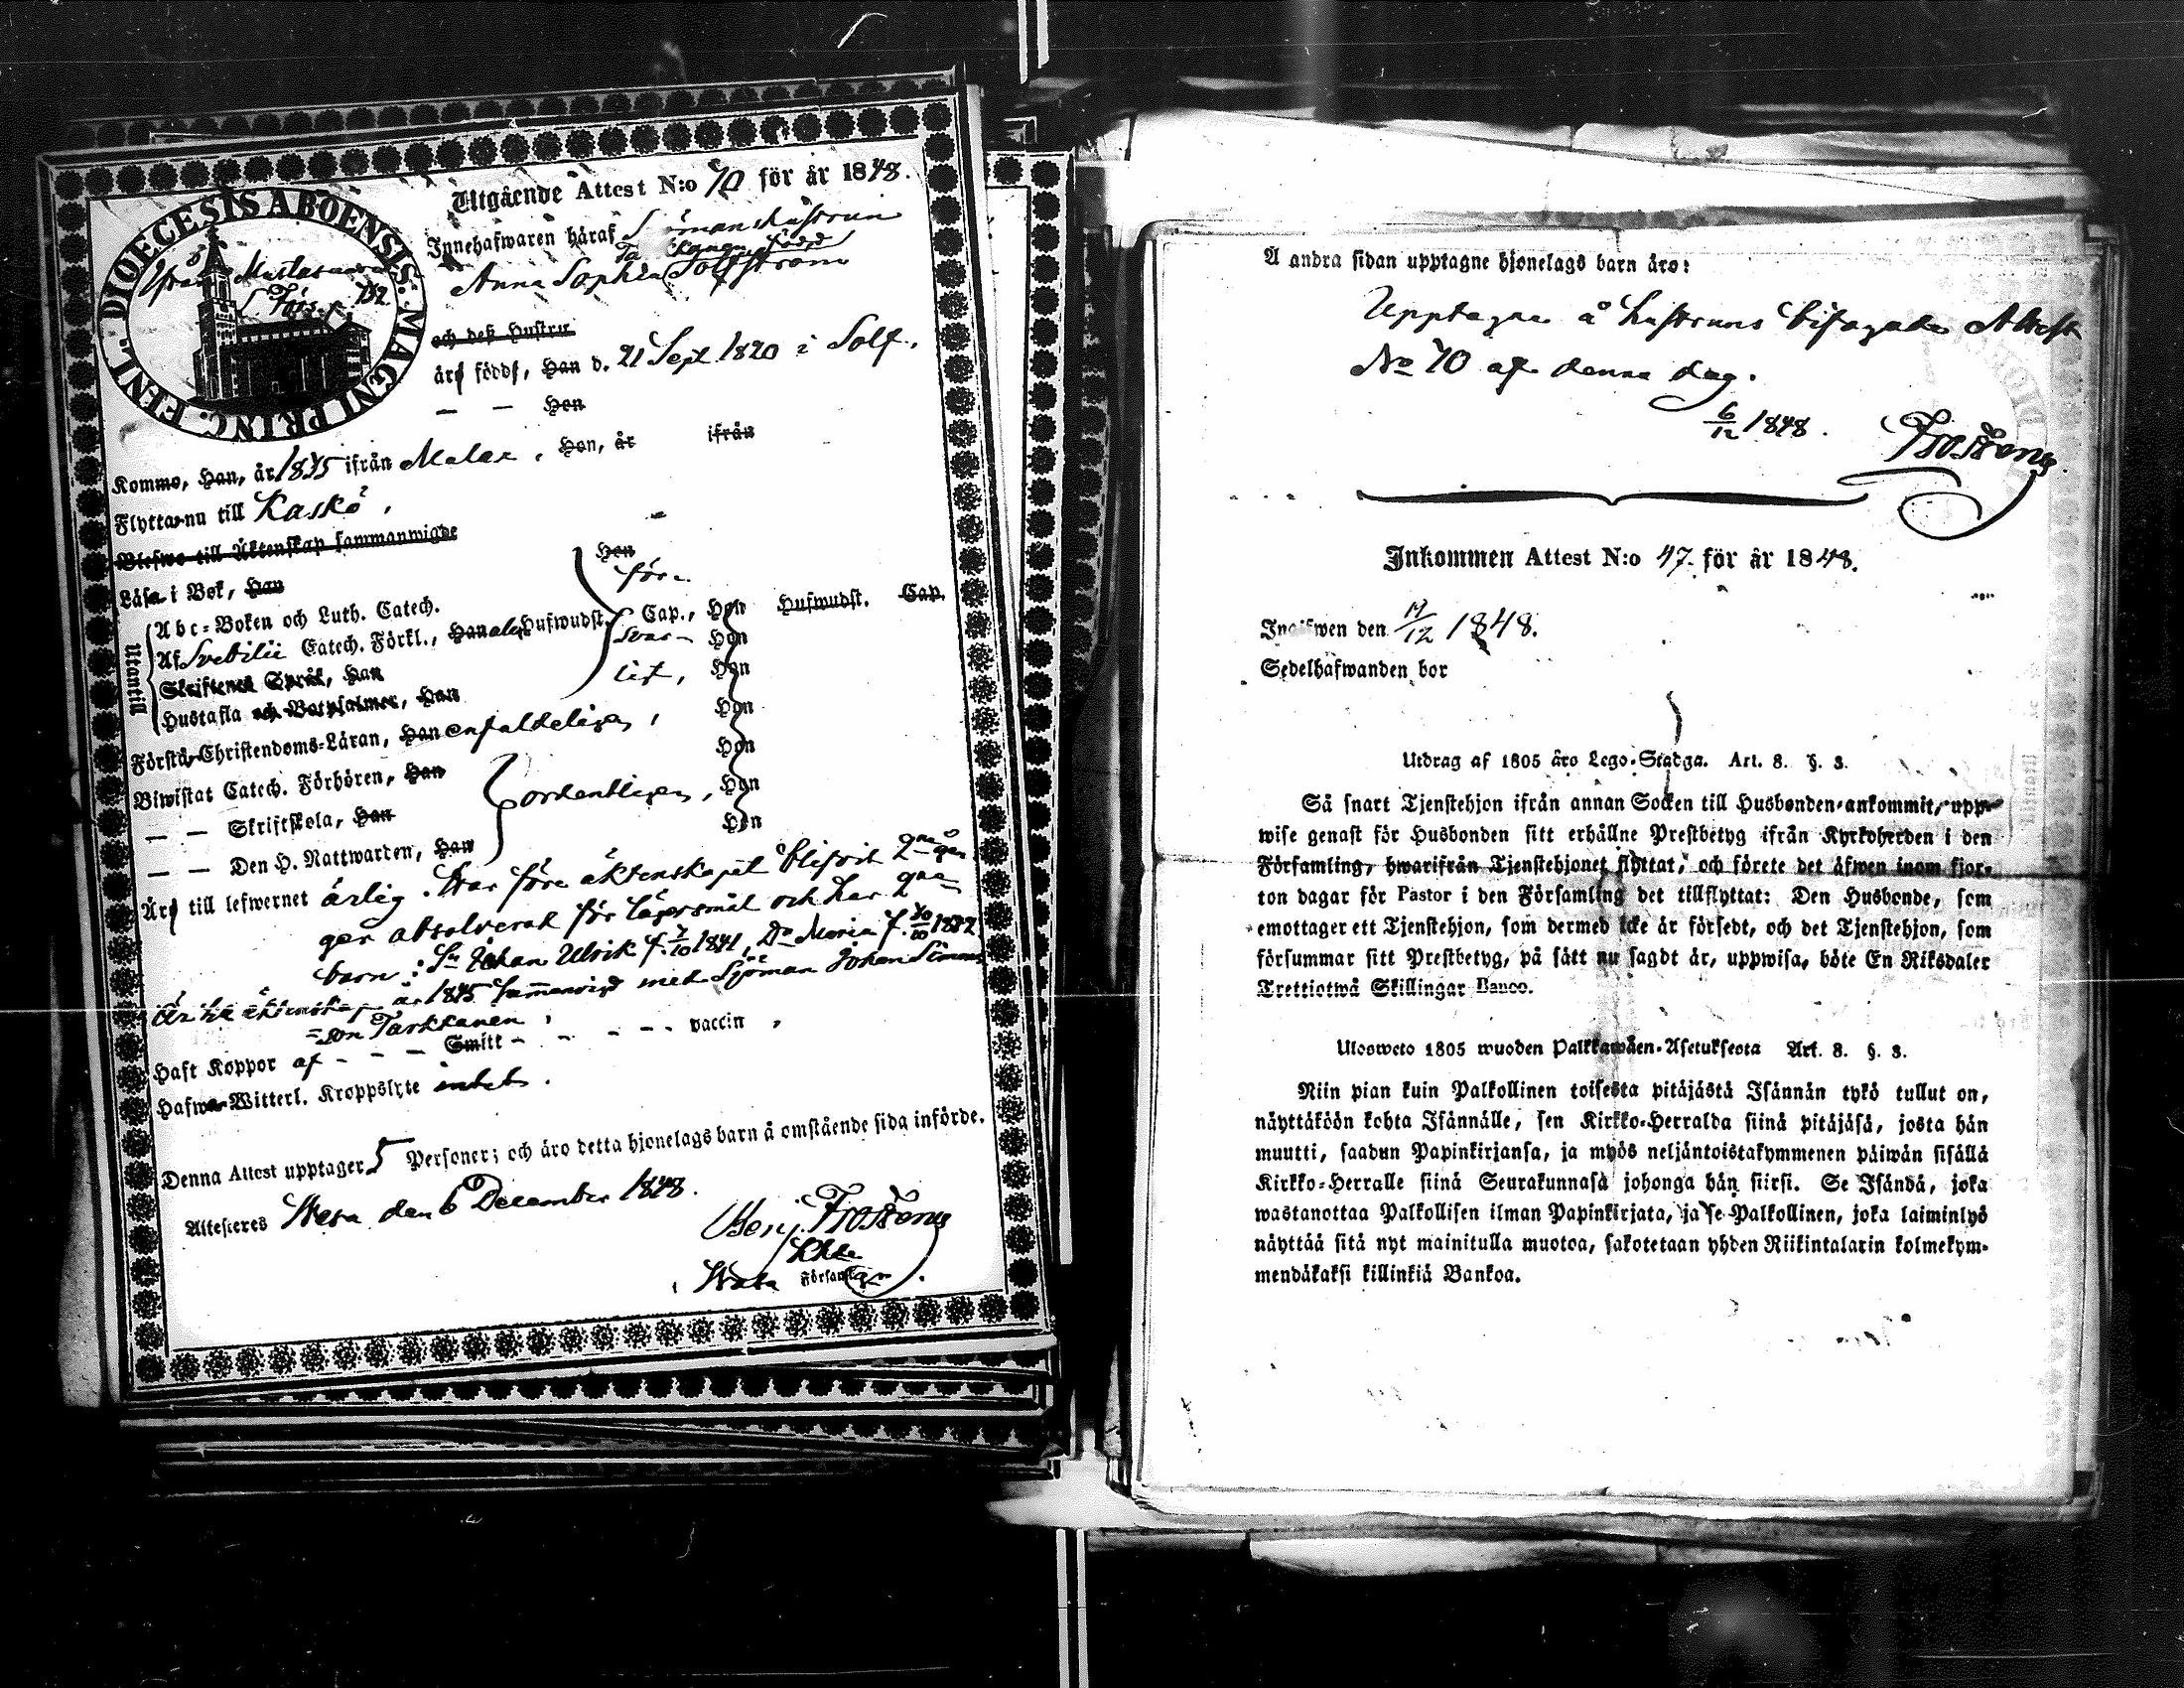 DIOECESIS ABOENSIS. MAGNI PRINC. FENL.
Utgående Attest N:o 70 för år 1848.
Innehafwaren häraf Sjöman hustrun
född
Anna Sophia Solfström
och deß Hustru
äro födde, Han d. 21 Sept 1820 i Solf.
— — Hon
Kommo, Han, år 1835 ifrån Malax, Hon, år ifrån
Flytta nu till Kaskö,
Blefwo till Äktenskap sammanwigde
Läsa i Bok, Han
Hon
för-
Utantill
Abc-Boken och Luth. Catech.
Af Svebilii Catech. Förkl., Han alla Hufwudst. 5 Cap., Hon Hufwudst. Cap.
Skriftenes Språk, Han
svar- Hon
Hustafla och Botpsalmer, Han
ligt, Hon
Förstå Christendoms-Läran, Han enfaldeligen, Hon
Biwistat Catech. Förhören, Han Hon
— — Skriftskola, Han ordentligen, Hon
— — Den H. Nattwarden, Han Hon
Äro till lefwernet ärlig. Har före äktenskapet blifvit 2ne gr
ger absolverad för lägersmål och har 2ne
barn: Sn Johan Ulrik f. 7/10 1841, Dr Maria f.
Är till äktenskap år 1845 sammanvigd med Sjöman Johan Simons
=son Tarkkanen,
Haft Koppor af - - - Smitt - - - - - vaccin,
Hafwa Witterl. Kroppslyte intet.
Denna Attest upptager 5 Personer; och äro detta hjonelags barn å omstående sida införde.
Attesteres Wasa den 6 December 1848.
Benj. Frosterus
Wasa Församlgn.
Å andra sidan upptagne hjonelags barn äro:
Upptagne å hustruns bifogade Attest
No 70 af denna dag.
6/12 1848.
Frosterus
Inkommen Attest N:o 47. för år 1848.
Ingifwen den 17/12 1848.
Sedelhafwanden bor
Utdrag af 1805 års Lego-Stadga. Art. 8. §. 3.
Så snart Tjenstehjon ifrån annan Socken till Husbonden ankommit, upp-
wise genast för Husbonden sitt erhållne Prestbetyg ifrån Kyrkoherden i den
Församling, hwarifrån Tjenstehjonet flyttat, och förete det äfwen inom fjor-
ton dagar för Pastor i den Församling det tillflyttat: Den Husbonde, som
emottager ett Tjenstehjon, som dermed icke är försedt, och det Tjenstehjon, som
försummar sitt Prestbetyg, på sätt nu sagdt är, uppwisa, böte En Riksdaler
Trettiotwå Skillingar Banco.
Ulosweto 1805 wuoden Palkkawäen-Asetuksesta Art. 8. §. 3.
Niin pian kuin Palkollinen toisesta pitäjästä Isännän tykö tullut on,
näyttäköön kohta Isännälle, sen Kirkko-Herralda siinä pitäjäsä, josta hän
muutti, saadun Papinkirjansa, ja myös neljäntoistakymmenen päiwän sisällä
Kirkko-Herralle siinä Seurakunnasa johonga hän siirsi. Se Isändä, joka
wastanottaa Palkollisen ilman Papinkirjata, ja se Palkollinen, joka laiminlyö
näyttää sitä nyt mainitulla muotoa, sakotetaan yhden Riikintalarin kolmekym-
mendäkaksi killinkiä Bankoa.